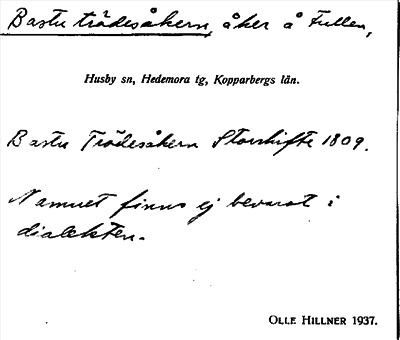 Bastu trädesåkern, åker å Fullen,
Husby sn, Hedemora tg, Kopparbergs län.
Bastu Trädesåkern Storskifte 1809.
Namnet finns ej bevarat i
dialekten.
OLLE HILLNER 1937.